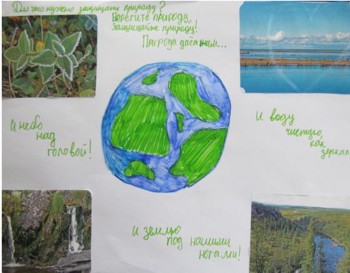 Для чего нужно защищать природу?
Берегите природу,
Защищайте природу!
Природа даёт нам...
И небо
над
головой!
И воду
чистую,
как
зеркало
И землю
под нашими
ногами!